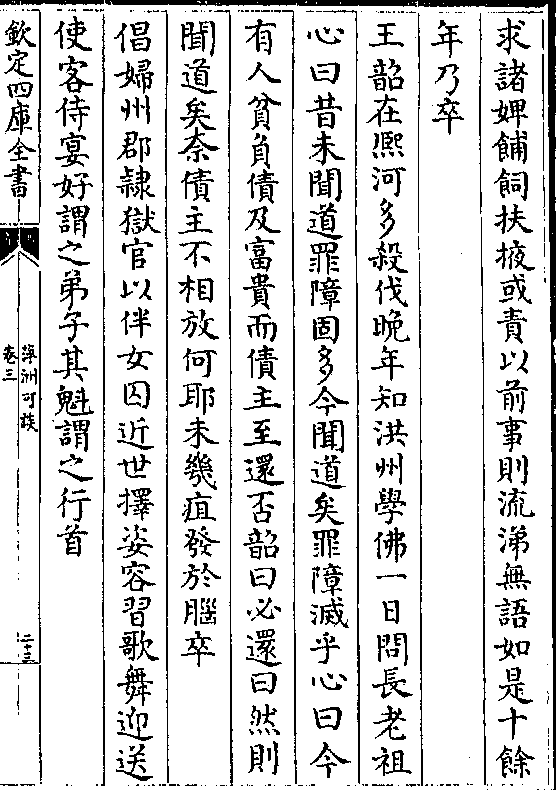 求諸婢餔飼扶掖或責以前事則流涕無語如是十餘
年乃卒
王韶在熈河多殺伐晩年知洪州學佛一日問長老祖
心曰昔未聞道罪障固多今聞道矣罪障滅乎心曰今
有人貧負債及富貴而債主至還否韶曰必還曰然則
聞道矣奈債主不相放何耶未幾疽發於腦卒
倡婦州郡隷獄官以伴女囚近世擇姿容習歌舞迎送
使客侍宴好謂之弟子其魁謂之行首
欽定四庫全書
萍洲可談
卷三
二十三